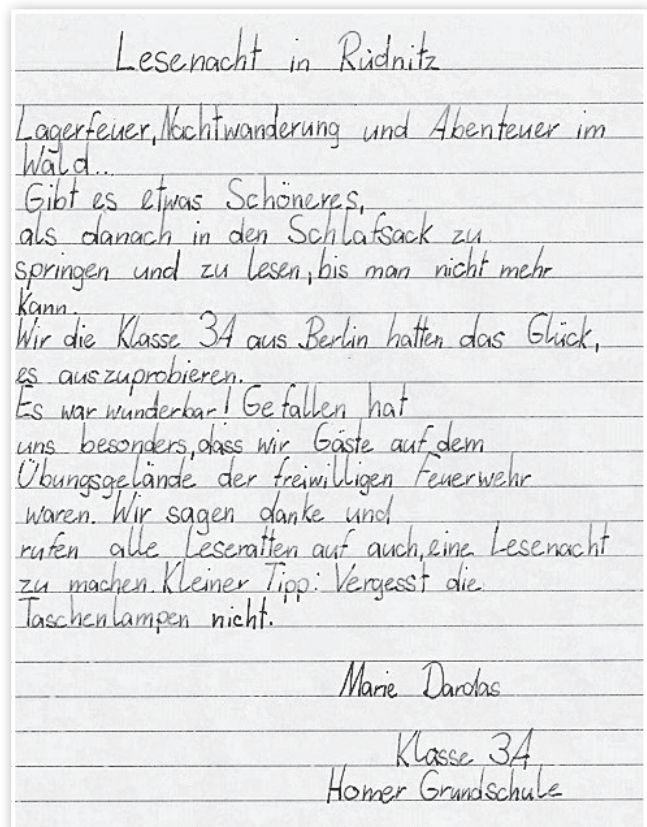 Lesenacht in Rüdnitz
Lagerfeuer, Nachtwanderung und Abenteuer im
Wald...
Gibt es etwas Schöneres,
als danach in den Schlafsack zu
springen und zu lesen, bis man nicht mehr
kann.
Wir die Klasse 3A aus Berlin hatten das Glück,
es auszuprobieren.
Es war wunderbar! Gefallen hat
uns besonders, dass wir Gäste auf dem
Übungsgelände der freiwilligen Feuerwehr
waren. Wir sagen danke und
rufen alle Leseratten auf auch, eine Lesenacht
zu machen. Kleiner Tipp: Vergesst die
Taschenlampen nicht.
Marie Darolas
Klasse 3A
Homer Grundschule